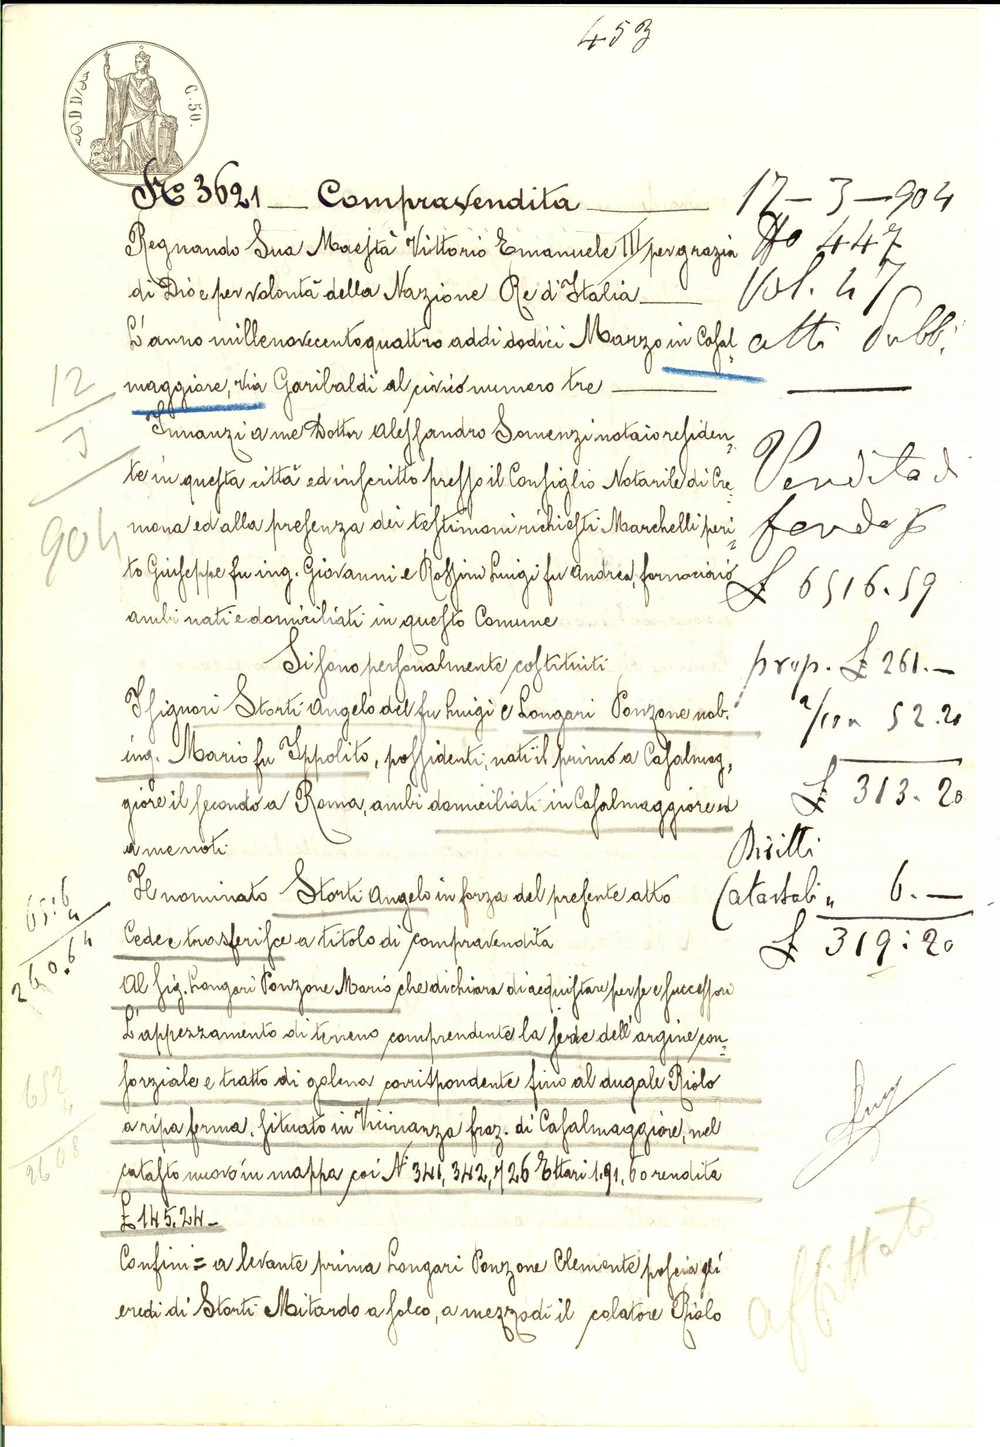 453
C. 50.
No 3621 — Compravendita —
Regnando Sua Maestà Vittorio Emanuele III per grazia
di Dio e per volontà della Nazione Re d'Italia —
L'anno millenovecentoquattro addì dodici Marzo in Casal=
maggiore, via Garibaldi al civico numero tre —
Innanzi a me Dottor Alessandro Somenzi notaio residen=
te in questa città ed inscritto presso il Consiglio Notarile di Cre=
mona ed alla presenza dei testimoni richiesti Marchelli peri=
to Giuseppe fu ing. Giovanni e Rossini Luigi fu Andrea, fornaciaio
ambi nati e domiciliati in questo Comune
Si sono personalmente costituiti
I signori Storti Angelo del fu Luigi e Longari Ponzone nob.
ing. Mario fu Ippolito, possidenti, nati il primo a Casalmag=
giore il secondo a Roma, ambi domiciliati in Casalmaggiore ed
a me noti.
Il nominato Storti Angelo in forza del presente atto
Cede e trasferisce a titolo di compravendita
Al sig. Longari Ponzone Mario che dichiara di acquistare per se e successori
L'appezzamento di terreno comprendente la sede dell'argine con=
sorziale e tratto di golena corrispondente fino al dugale Riolo
a ripa ferma, situato in Vicinanza fraz. di Casalmaggiore, nel
catasto nuovo in mappa coi Ni 341, 342, 726 Ettari 1.91.60 rendita
£ 145.24 —
Confini = a levante prima Longari Ponzone Clemente poscia gli
eredi di Storti Mitardo a solco, a mezzodì il colatore Riolo
17 — 3 — 904
No 447
Vol. 47
atti Pubbl.
Vendita di
fondo
£ 6516.59
prop. £ 261.—
52.20
£ 313.20
Diritti
Catastali " 6.—
£ 319:20
12
3
904
65:6
4
260.64
652
4
2608
affittato